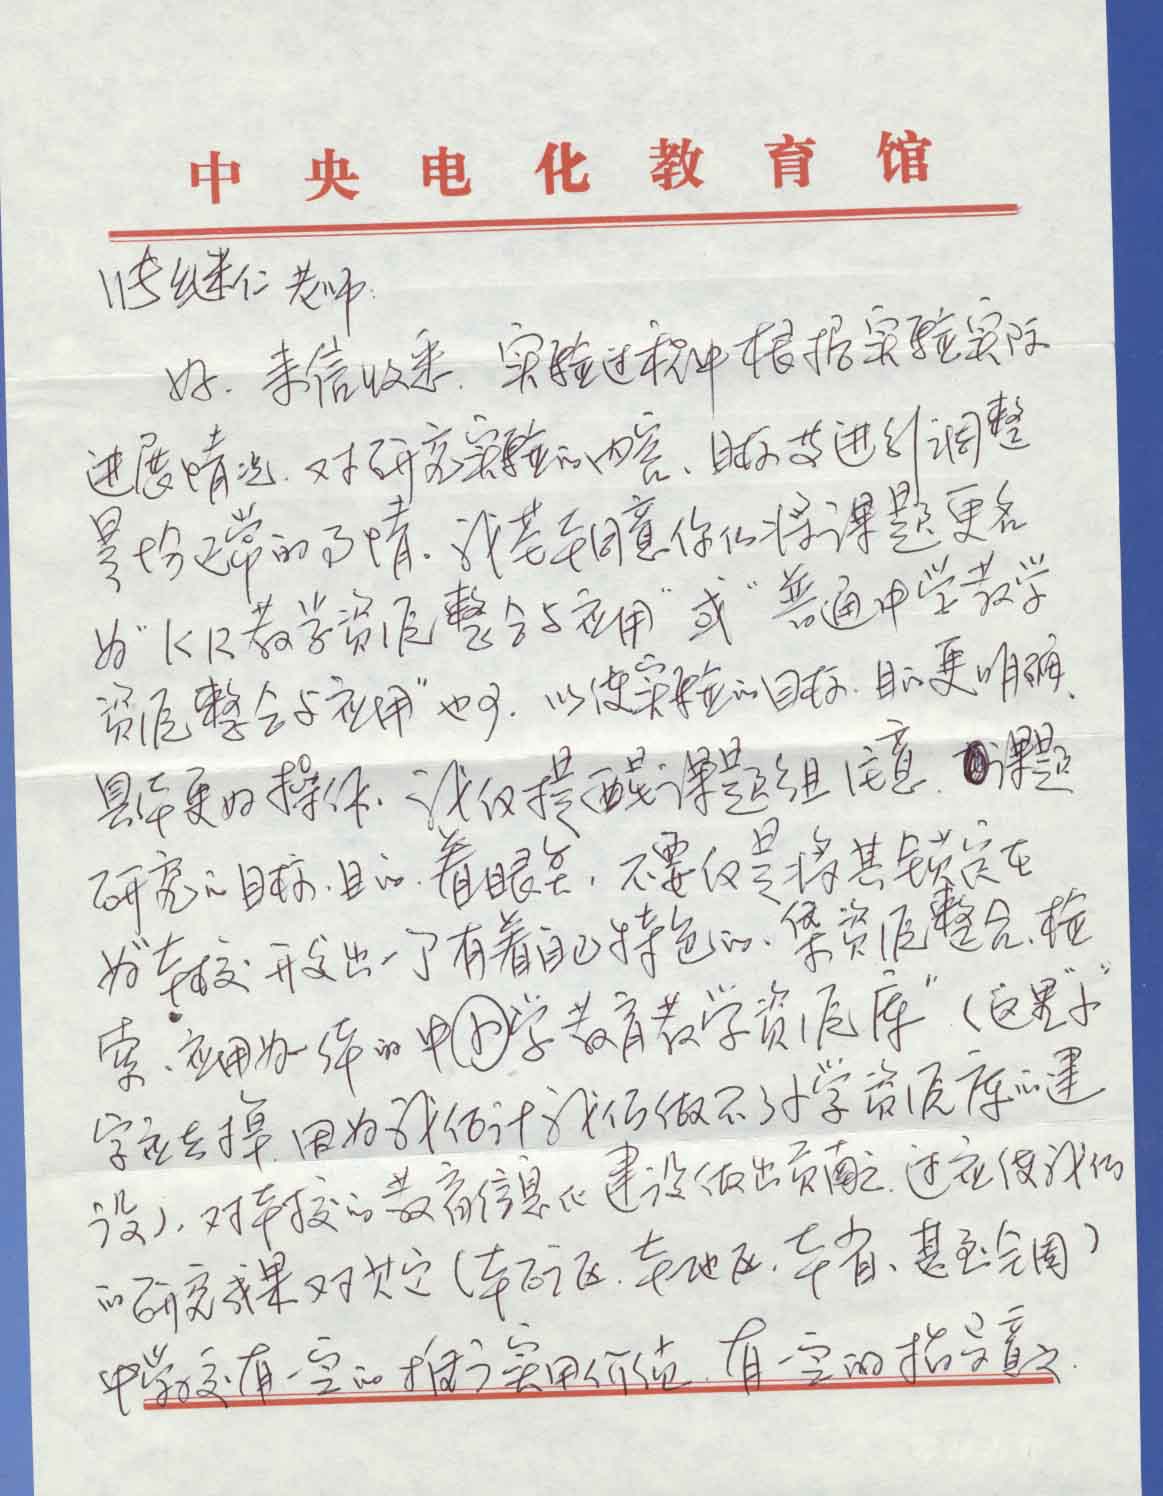 中央电化教育馆
张继仁老师:
好.来信收悉.实验过程中根据实验实际
进展情况.对研究实验的内容、目标等进行调整
是十分正常的事情.我基本同意你们将课题更名
为"KR教学资源整合与应用"或"普通中学教学
资源整合与应用"也可.以使实验的目标.目的更明确、
具体更好操作.我仅提醒课题组注意.课题
研究的目标.目的.着眼点,不要仅是将其锁定在
为"本校开发出一个有着自己特色的、集资源整合、检
索、应用为一体的中小学教育教学资源库"(这里"小"
字应去掉.因为我估计我们做不了小学资源库的建
设),对本校的教育信息化建设做出贡献.还应使我们
的研究成果对其它(本矿区.本地区.本省、甚至全国)
中学校有一定的推广实用价值.有一定的指导意义.